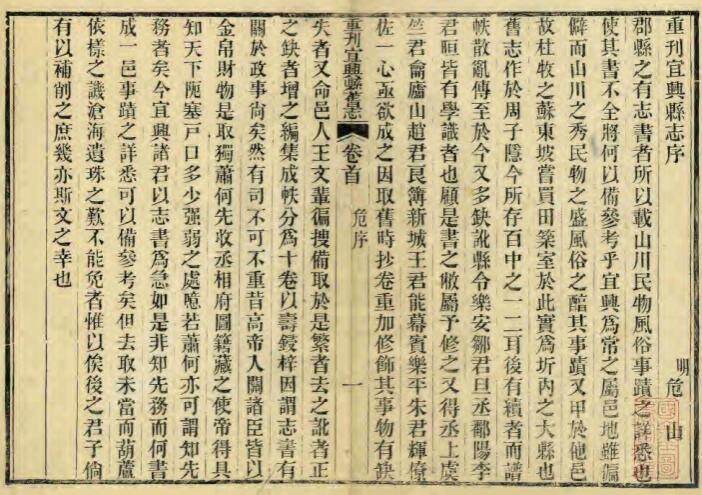 重刊宜興縣志序
明危山
郡縣之有志書者所以載山川民物風俗事蹟之詳悉也
使其書不全將何以備參考乎宜興爲常之屬邑地雖偏
僻而山川之秀民物之盛風俗之醇其事蹟又甲於他邑
故杜牧之蘇東坡嘗買田築室於此實爲圻內之大縣也
舊志作於周子隱今所存百中之一二耳後有續者而譜
帙散亂傳至於今又多缺訛縣令樂安鄒君旦丞鄱陽李
君晅皆有學識者也顧是書之敝屬予修之又得丞上虞
竺君龠廬山趙君艮簿新城王君能幕賓樂平朱君輝僚
佐一心亟欲成之因取舊時抄卷重加修飾其事物有缺
重刊宜興縣舊志
卷首
危序
一
失者又命邑人王文輩徧搜備取於是繁者去之訛者正
之缺者增之編集成帙分爲十卷以壽鋟梓因謂志書有
關於政事尚矣然有司不可不重昔高帝人關諸臣皆以
金帛財物是取獨蕭何先收丞相府圖籍藏之使帝得具
知天下阨塞戸口多少强弱之處噫若蕭何亦可謂知先
務者矣今宜興諸君以志書爲急如是非知先務而何書
成一邑事蹟之詳悉可以備參考矣但去取未當而葫蘆
依樣之譏滄海遺珠之歎不能免者惟以俟後之君子倘
有以補削之庶幾亦斯文之幸也